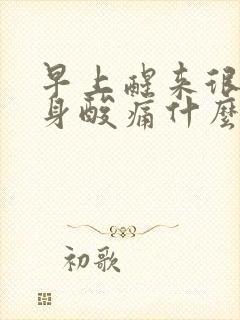 早上醒来很
身酸痛什麼
初歌